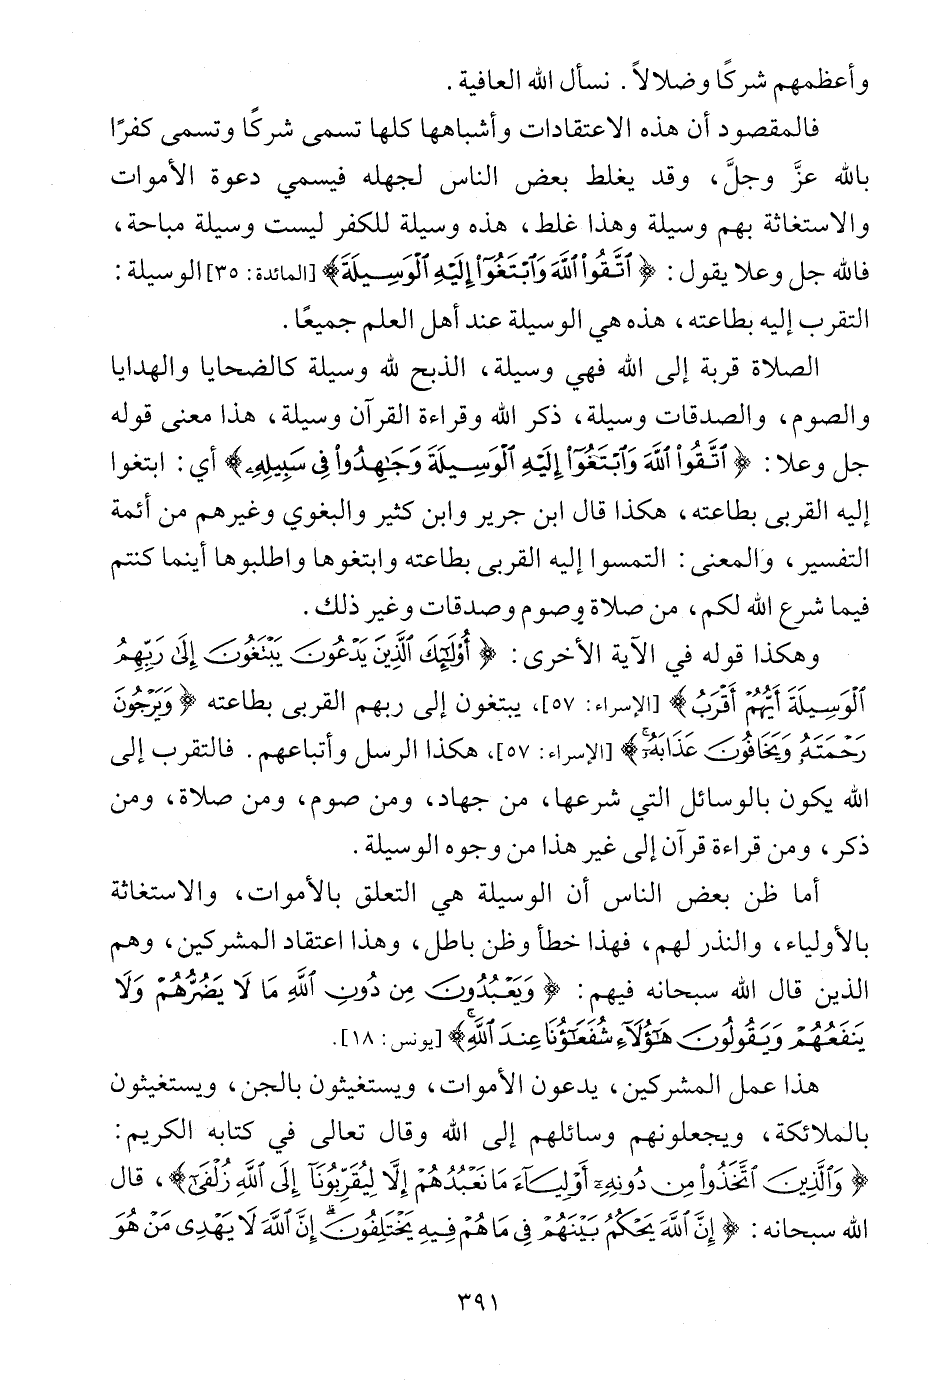 وأعظمهم شركًا وضلالاً. نسأل الله العافية.
فالمقصود أن هذه الاعتقادات وأشباهها كلها تسمى شركًا وتسمى كفرًا
بالله عزَّ وجلَّ، وقد يغلط بعض الناس لجهله فيسمي دعوة الأموات
والاستغاثة بهم وسيلة وهذا غلط، هذه وسيلة للكفر ليست وسيلة مباحة،
فالله جل وعلا يقول: ﴿ ٱتَّقُوا۟ ٱللَّهَ وَٱبْتَغُوٓا۟ إِلَيْهِ ٱلْوَسِيلَةَ﴾ [المائدة: ٣٥] الوسيلة:
التقرب إليه بطاعته، هذه هي الوسيلة عند أهل العلم جميعًا.
الصلاة قربة إلى الله فهي وسيلة، الذبح لله وسيلة كالضحايا والهدايا
والصوم، والصدقات وسيلة، ذكر الله وقراءة القرآن وسيلة، هذا معنى قوله
جل وعلا: ﴿ ٱتَّقُوا۟ ٱللَّهَ وَٱبْتَغُوٓا۟ إِلَيْهِ ٱلْوَسِيلَةَ وَجَٰهِدُوا۟ فِى سَبِيلِهِۦ﴾ أي: ابتغوا
إليه القربى بطاعته، هكذا قال ابن جرير وابن كثير والبغوي وغيرهم من أئمة
التفسير، والمعنى: التمسوا إليه القربى بطاعته وابتغوها واطلبوها أينما كنتم
فيما شرع الله لكم، من صلاة وصوم وصدقات وغير ذلك.
وهكذا قوله في الآية الأخرى: ﴿ أُو۟لَٰٓئِكَ ٱلَّذِينَ يَدْعُونَ يَبْتَغُونَ إِلَىٰ رَبِّهِمُ
ٱلْوَسِيلَةَ أَيُّهُمْ أَقْرَبُ﴾ [الإسراء: ٥٧]، يبتغون إلى ربهم القربى بطاعته ﴿ وَيَرْجُونَ
رَحْمَتَهُۥ وَيَخَافُونَ عَذَابَهُۥٓ ۚ﴾ [الإسراء: ٥٧]، هكذا الرسل وأتباعهم. فالتقرب إلى
الله يكون بالوسائل التي شرعها، من جهاد، ومن صوم، ومن صلاة، ومن
ذكر، ومن قراءة قرآن إلى غير هذا من وجوه الوسيلة.
أما ظن بعض الناس أن الوسيلة هي التعلق بالأموات، والاستغاثة
بالأولياء، والنذر لهم، فهذا خطأ وظن باطل، وهذا اعتقاد المشركين، وهم
الذين قال الله سبحانه فيهم: ﴿ وَيَعْبُدُونَ مِن دُونِ ٱللَّهِ مَا لَا يَضُرُّهُمْ وَلَا
يَنفَعُهُمْ وَيَقُولُونَ هَٰٓؤُلَآءِ شُفَعَٰٓؤُنَا عِندَ ٱللَّهِ ۚ﴾ [يونس: ١٨].
هذا عمل المشركين، يدعون الأموات، ويستغيثون بالجن، ويستغيثون
بالملائكة، ويجعلونهم وسائلهم إلى الله وقال تعالى في كتابه الكريم:
﴿ وَٱلَّذِينَ ٱتَّخَذُوا۟ مِن دُونِهِۦٓ أَوْلِيَآءَ مَا نَعْبُدُهُمْ إِلَّا لِيُقَرِّبُونَآ إِلَى ٱللَّهِ زُلْفَىٰٓ﴾، قال
الله سبحانه: ﴿ إِنَّ ٱللَّهَ يَحْكُمُ بَيْنَهُمْ فِى مَا هُمْ فِيهِ يَخْتَلِفُونَ ۗ إِنَّ ٱللَّهَ لَا يَهْدِى مَنْ هُوَ
٣٩١